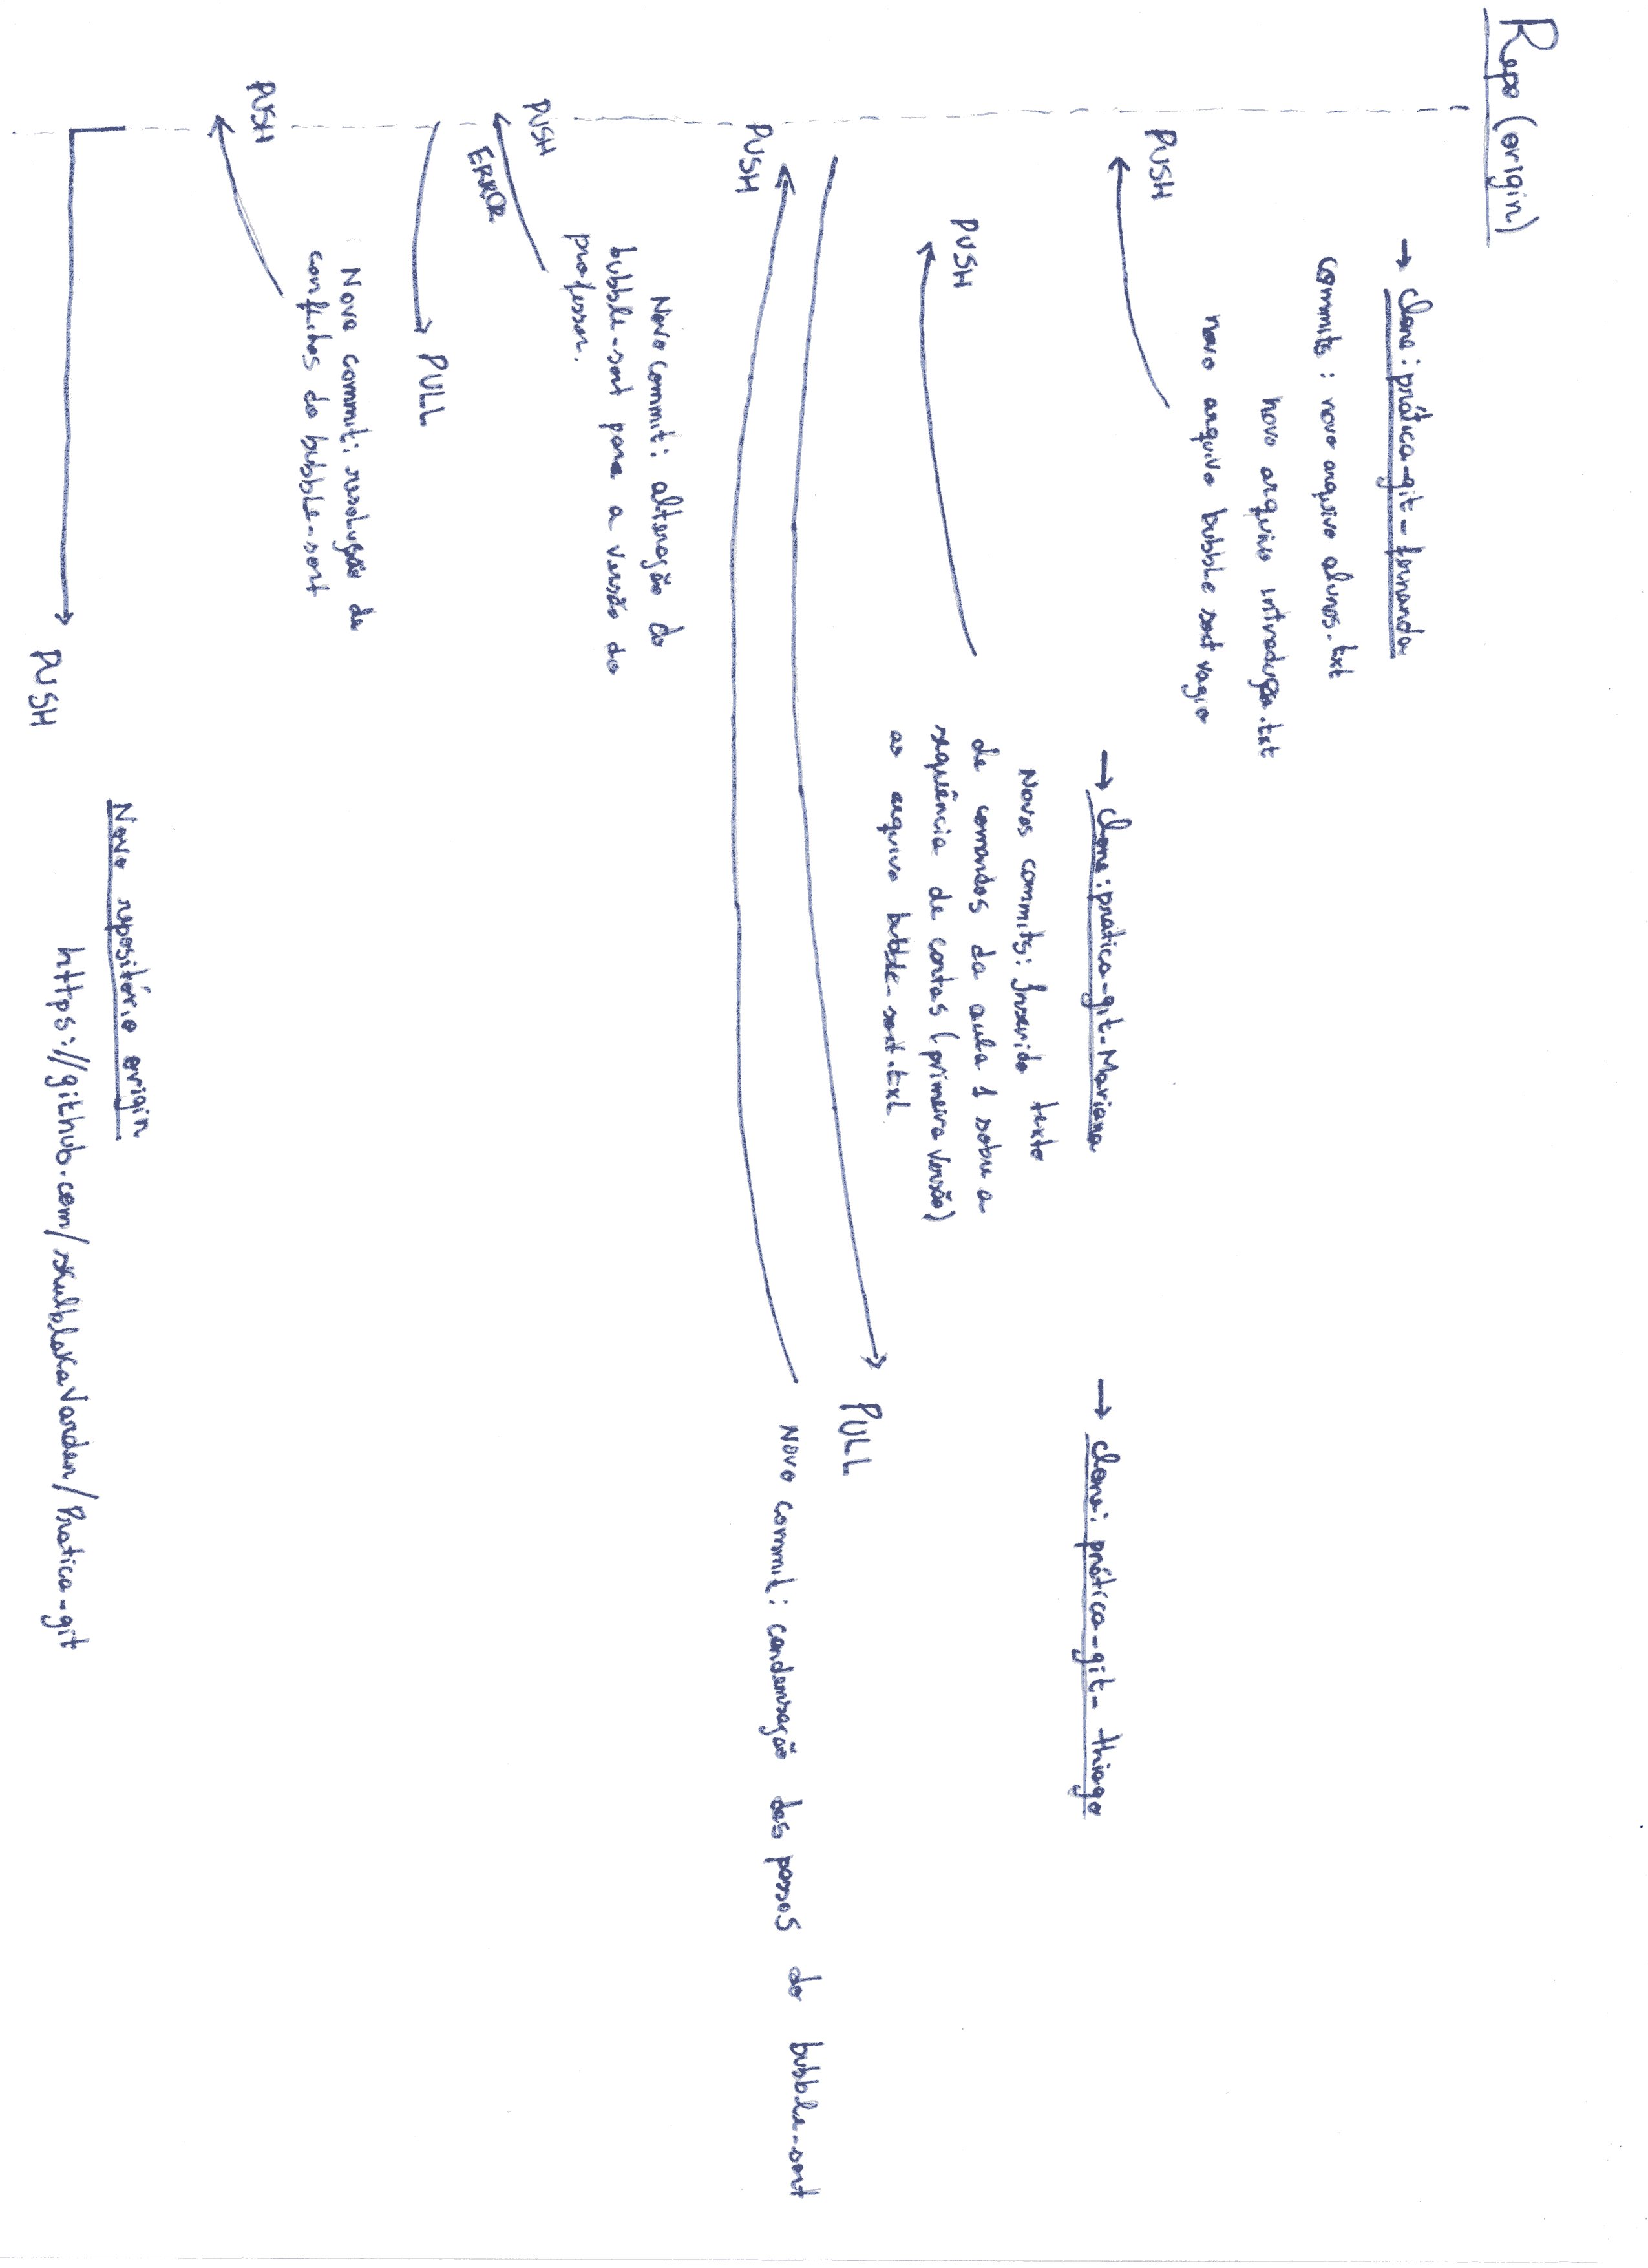 Repo (origin)
→ clone: prática-git-fernanda
commits: novo arquivo alunos.txt
novo arquivo introdução.txt
novo arquivo bubble sort vazio
PUSH
→ clone: pratica-git-Mariana
→ clone: prática-git-thiago
Novos commits: Inserido texto
de comandos da aula 1 sobre a
sequência de contas (primeira versão)
ao arquivo bubble-sort.txt
PUSH
PULL
Novo commit: condensação dos passos do bubble-sort
PUSH
Novo commit: alteração do
bubble-sort para a versão do
professor.
PUSH
ERROR
PULL
Novo commit: resolução de
conflitos do bubble-sort
PUSH
Novo repositório origin
PUSH
https://github.com/skulblakaVarden/Pratica-git